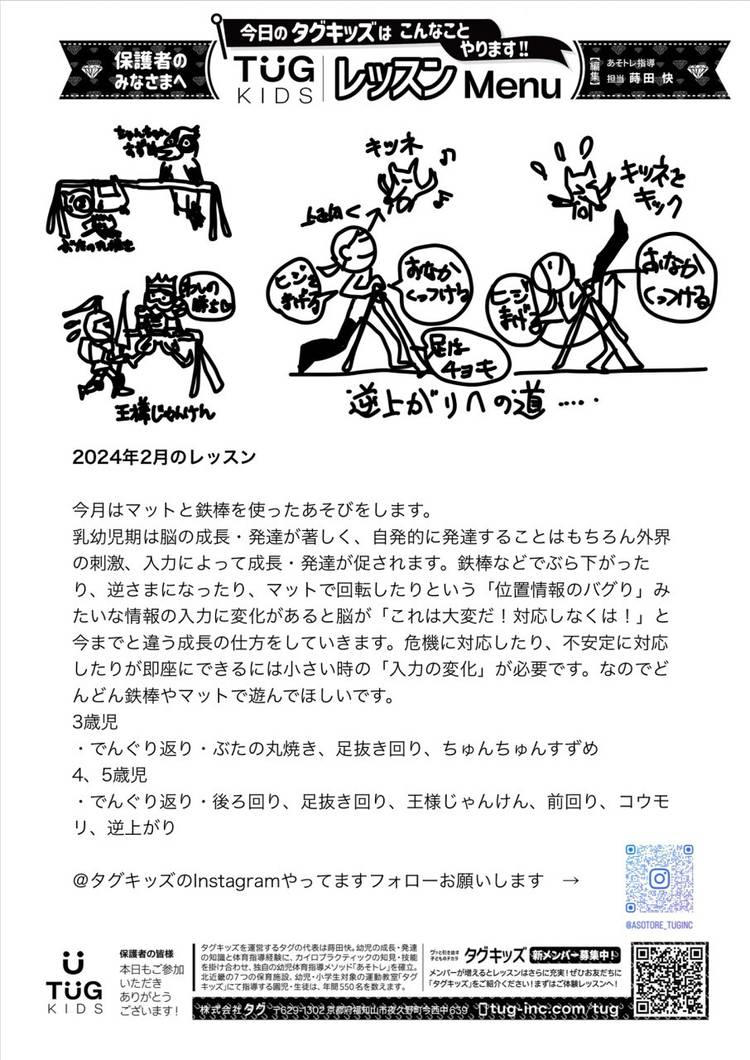 今日の タグキッズは こんなこと
やります!!
保護者の
みなさまへ
TUG
KIDS
レッスン Menu
【編集】
あそトレ指導
担当 蒔田 快
ちゅんちゅん
すずめ
ぶたの丸焼き
わしの
勝ちじゃ
王様じゃんけん
キツネ
上を向く
ヒジを
まげる
おなか
くっつける
足は
チョキ
キツネを
キック
ヒジ
まげる
おなか
くっつける
逆上がりへの道……
2024年2月のレッスン
今月はマットと鉄棒を使ったあそびをします。
乳幼児期は脳の成長・発達が著しく、自発的に発達することはもちろん外界
の刺激、入力によって成長・発達が促されます。鉄棒などでぶら下がった
り、逆さまになったり、マットで回転したりという「位置情報のバグり」み
たいな情報の入力に変化があると脳が「これは大変だ！対応しなくは！」と
今までと違う成長の仕方をしていきます。危機に対応したり、不安定に対応
したりが即座にできるには小さい時の「入力の変化」が必要です。なのでど
んどん鉄棒やマットで遊んでほしいです。
3歳児
・でんぐり返り・ぶたの丸焼き、足抜き回り、ちゅんちゅんすずめ
4、5歳児
・でんぐり返り・後ろ回り、足抜き回り、王様じゃんけん、前回り、コウモ
リ、逆上がり
@タグキッズのInstagramやってますフォローお願いします　→
@ASOTORE_TUGINC
TUG
KIDS
保護者の皆様
本日もご参加
いただき
ありがとう
ございます！
タグキッズを運営するタグの代表は蒔田快。幼児の成長・発達
の知識と体育指導経験に、カイロプラクティックの知見・技能
を掛け合わせ、独自の幼児体育指導メソッド「あそトレ」を確立。
北近畿の7つの保育施設、幼児・小学生対象の運動教室「タグ
キッズ」にて指導する園児・生徒は、年間550名を数えます。
グッと引き出す
子どものチカラ
タグキッズ 新メンバー募集中！
メンバーが増えるとレッスンはさらに充実！ぜひお友だちに
「タグキッズ」をご紹介ください！まずはご体験レッスンへ！
株式会社 タグ 〒629-1302 京都府福知山市夜久野町今西中639
tug-inc.com/tug